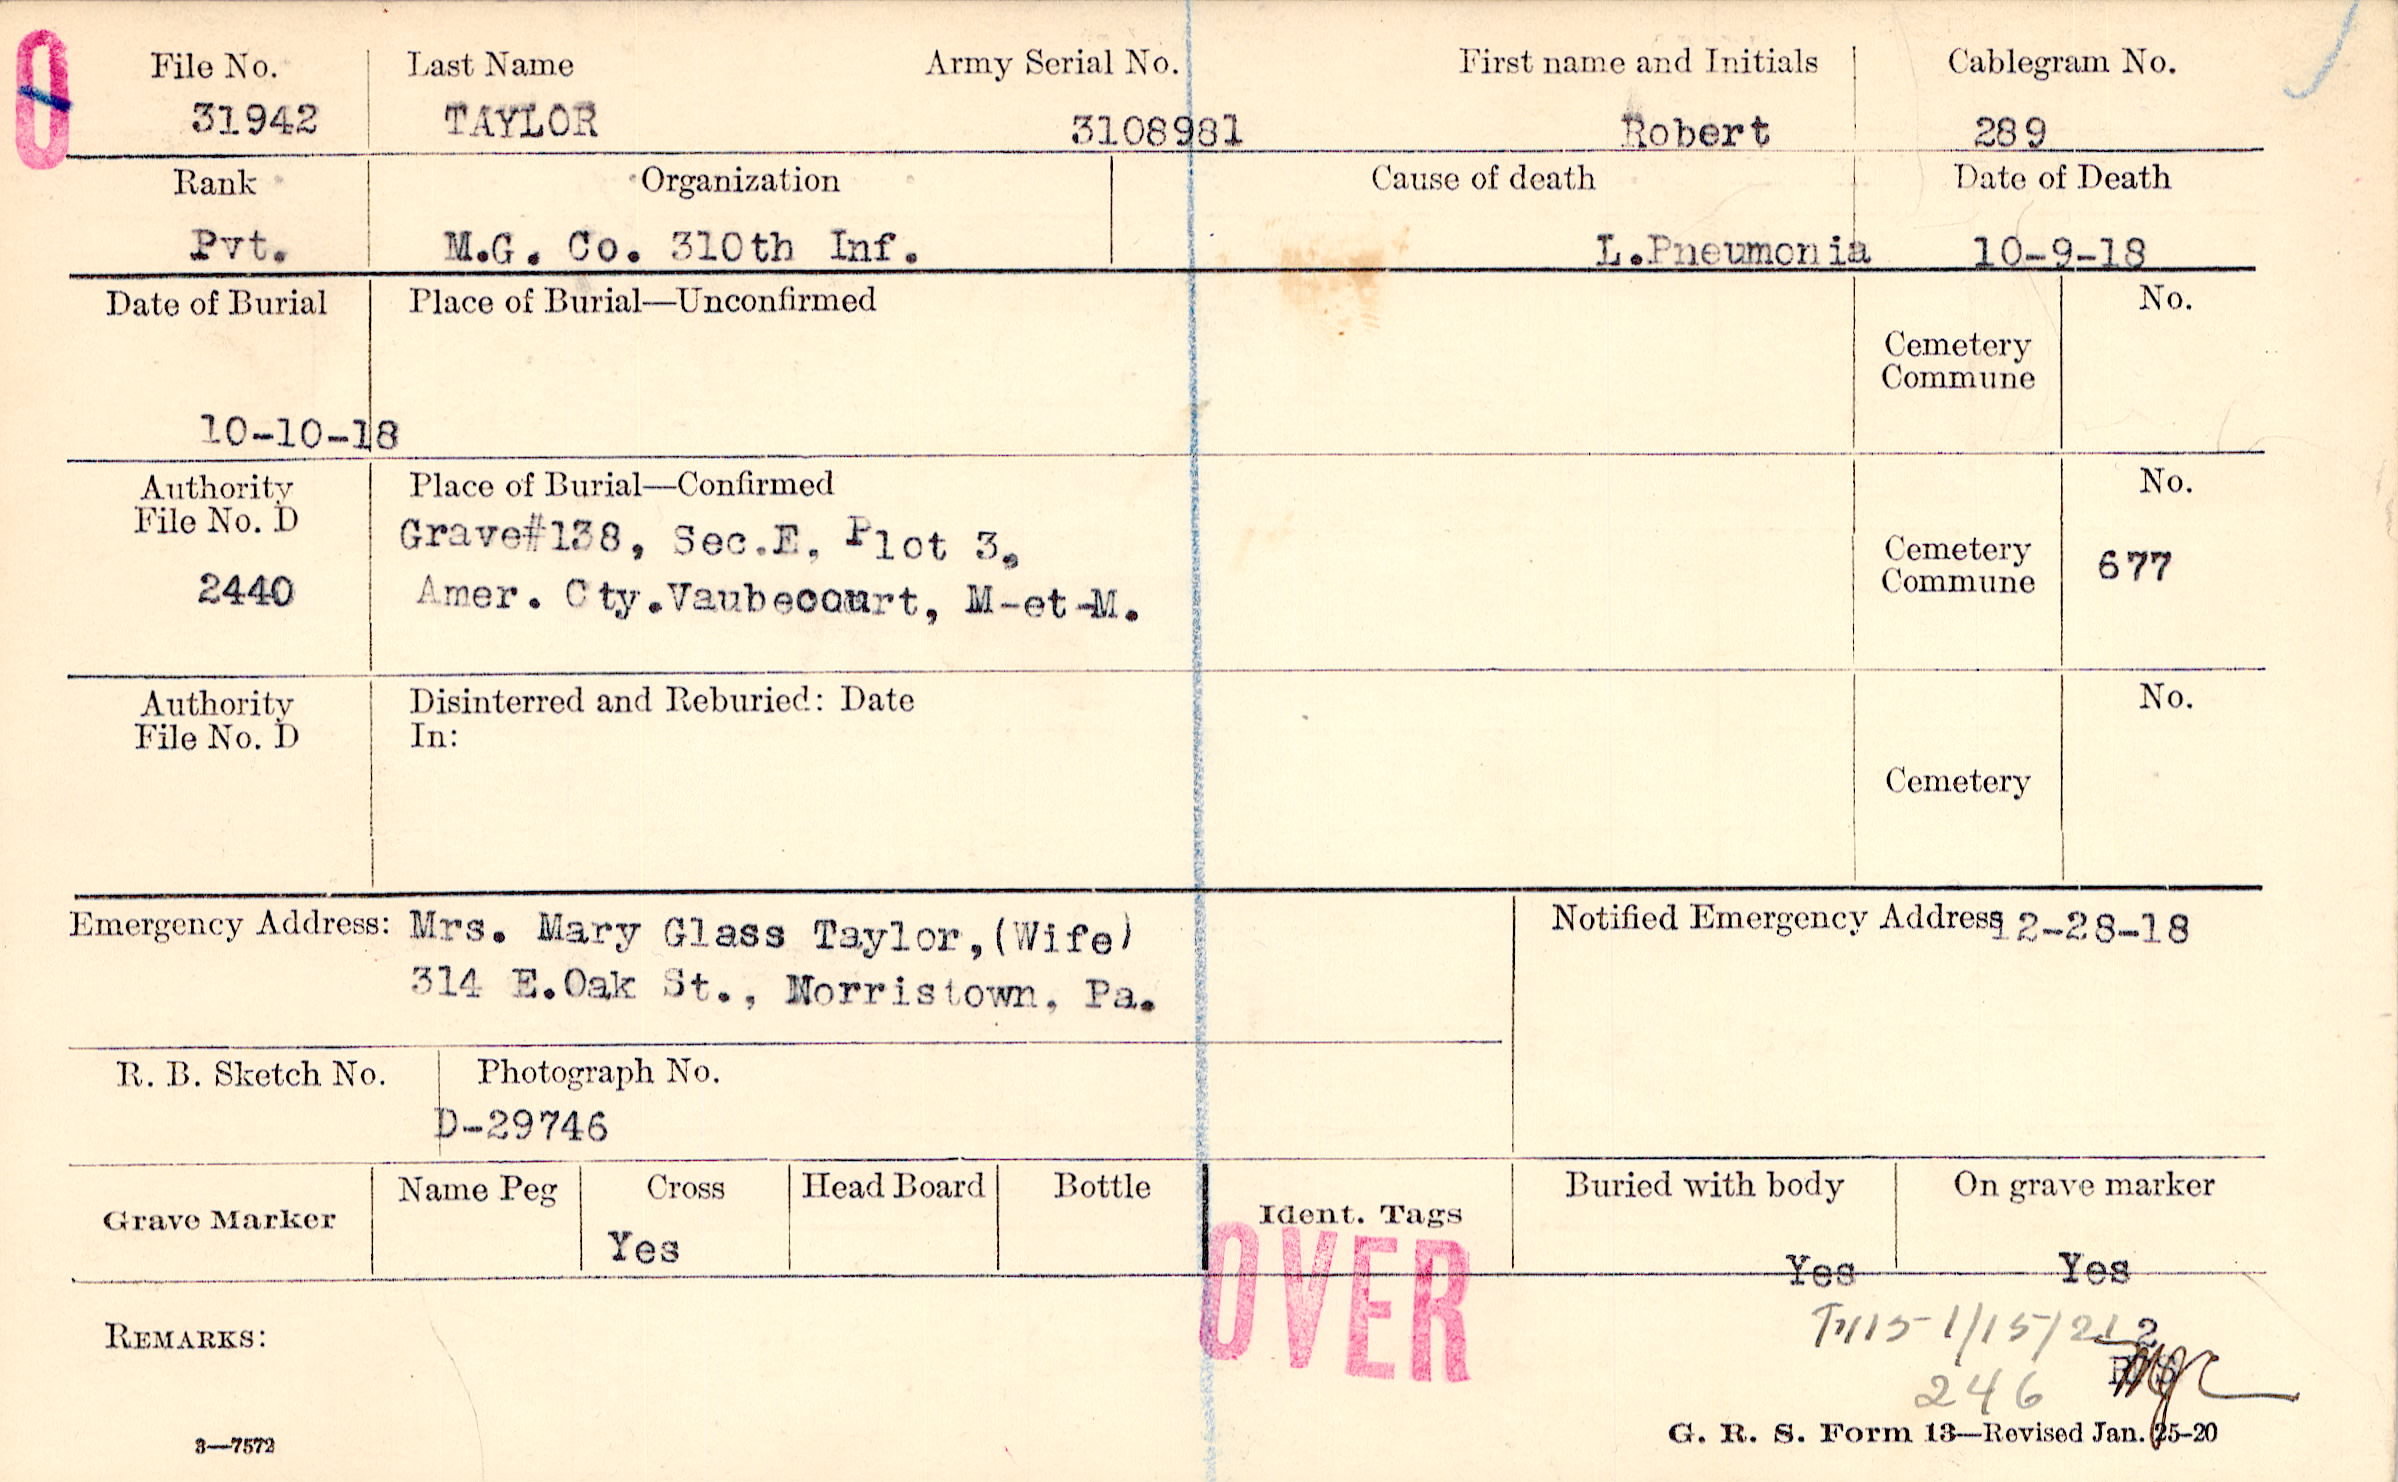 O
File No. Last Name Army Serial No. First name and Initials Cablegram No.
31942 TAYLOR 3108981 Robert 289
Rank Organization Cause of death Date of Death
Pvt. M.G. Co. 310th Inf. L.Pneumonia 10-9-18
Date of Burial Place of Burial—Unconfirmed No.
Cemetery
Commune
10-10-18
Authority Place of Burial—Confirmed No.
File No. D
Grave#138, Sec.E, Plot 3,
Cemetery
Commune 677
2440 Amer. Cty.Vaubecourt, M-et-M.
Authority Disinterred and Reburied: Date No.
File No. D In:
Cemetery
Emergency Address: Mrs. Mary Glass Taylor,(Wife) Notified Emergency Address 12-28-18
314 E.Oak St., Norristown, Pa.
R. B. Sketch No. Photograph No.
D-29746
Grave Marker Name Peg Cross Head Board Bottle Ident. Tags Buried with body On grave marker
Yes Yes Yes
OVER
1/15/21 2
REMARKS:
246
3—7572 G. R. S. Form 13—Revised Jan. 25-20